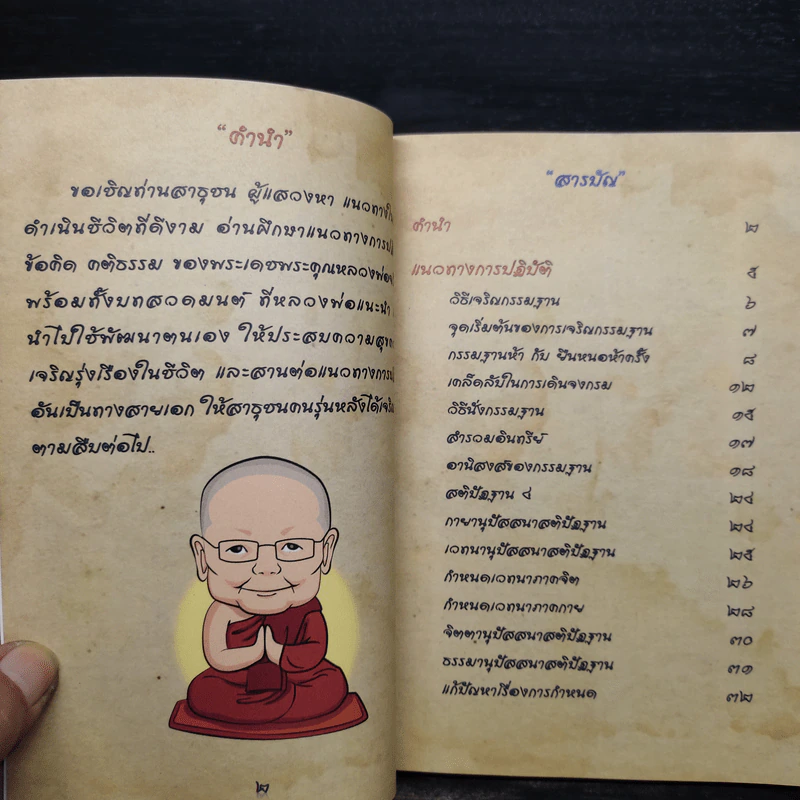 “คำนำ”
ขอเชิญท่านสาธุชน ผู้แสวงหา แนวทางใน
ดำเนินชีวิตที่ดีงาม อ่านศึกษาแนวทางการป
ข้อคิด คติธรรม ของพระเดชพระคุณหลวงพ่อ
พร้อมทั้งบทสวดมนต์ ที่หลวงพ่อแนะนำ
นำไปใช้พัฒนาตนเอง ให้ประสบความสุข
เจริญรุ่งเรืองในชีวิต และสานต่อแนวทางการป
อันเป็นทางสายเอก ให้สาธุชนคนรุ่นหลังได้เจริ
ตามสืบต่อไป..
๒
“สารบัญ”
คำนำ ๒
แนวทางการปฏิบัติ ๕
วิธีเจริญกรรมฐาน ๖
จุดเริ่มต้นของการเจริญกรรมฐาน ๗
กรรมฐานห้า กับ ยืนหนอห้าครั้ง ๘
เคล็ดลับในการเดินจงกรม ๑๒
วิธีนั่งกรรมฐาน ๑๕
สำรวมอินทรีย์ ๑๗
อานิสงส์ของกรรมฐาน ๑๘
สติปัฏฐาน ๔ ๒๔
กายานุปัสสนาสติปัฏฐาน ๒๔
เวทนานุปัสสนาสติปัฏฐาน ๒๕
กำหนดเวทนาภาคจิต ๒๖
กำหนดเวทนาภาคกาย ๒๘
จิตตานุปัสสนาสติปัฏฐาน ๓๐
ธรรมานุปัสสนาสติปัฏฐาน ๓๑
แก้ปัญหาเรื่องการกำหนด ๓๒